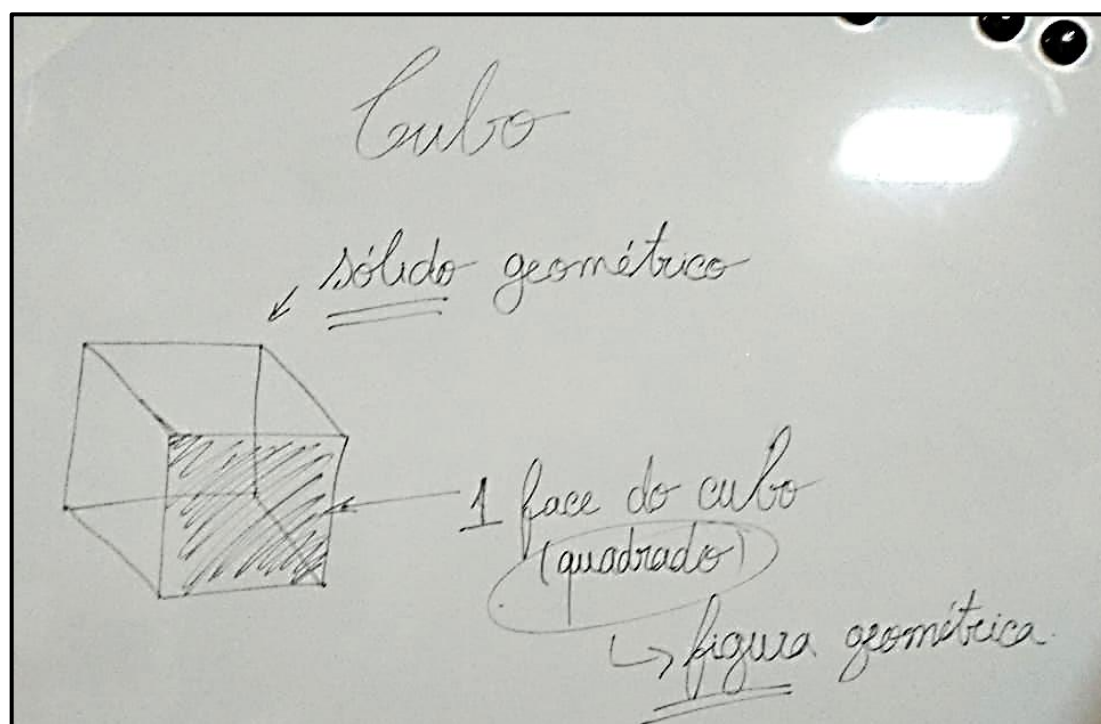 Cubo
sólido geométrico
1 face do cubo
(quadrado)
figura geométrica.